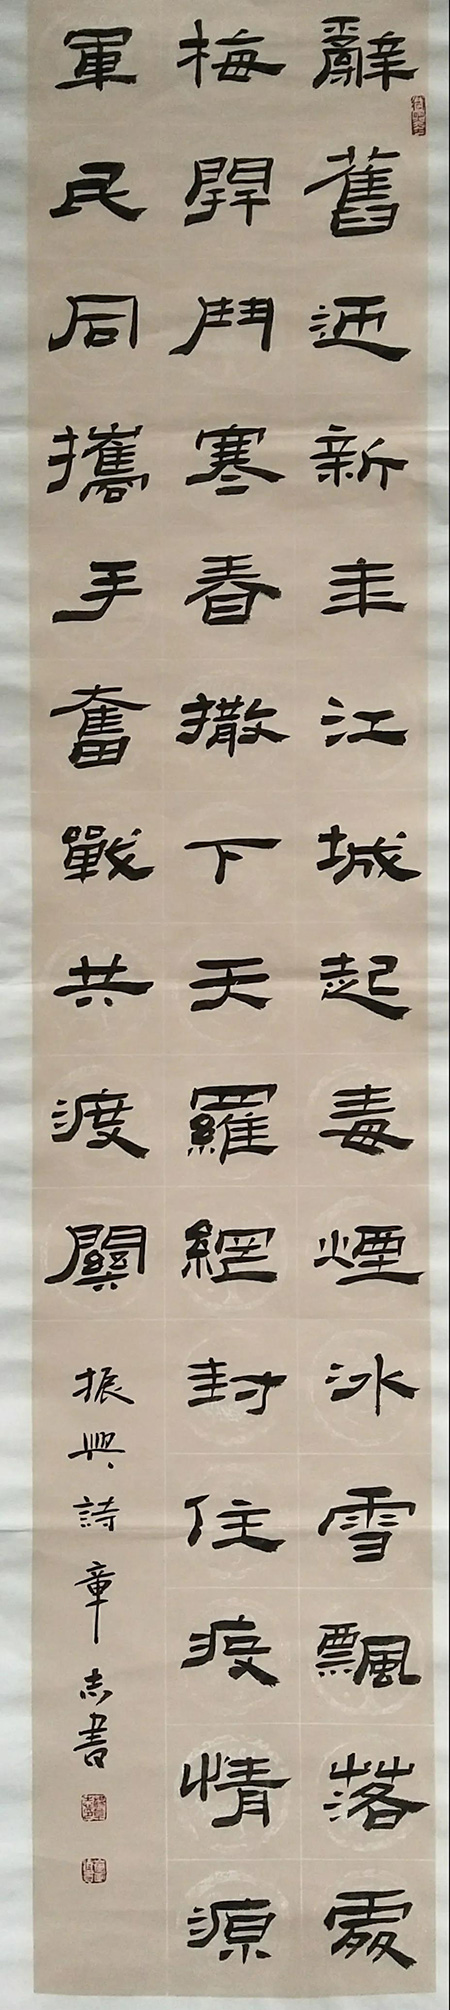 辭舊迎新年江城起毒煙冰雪飄落處
梅開鬥寒春撒下天羅網封住疫情源
軍民同攜手奮戰共渡關
振興詩章志書